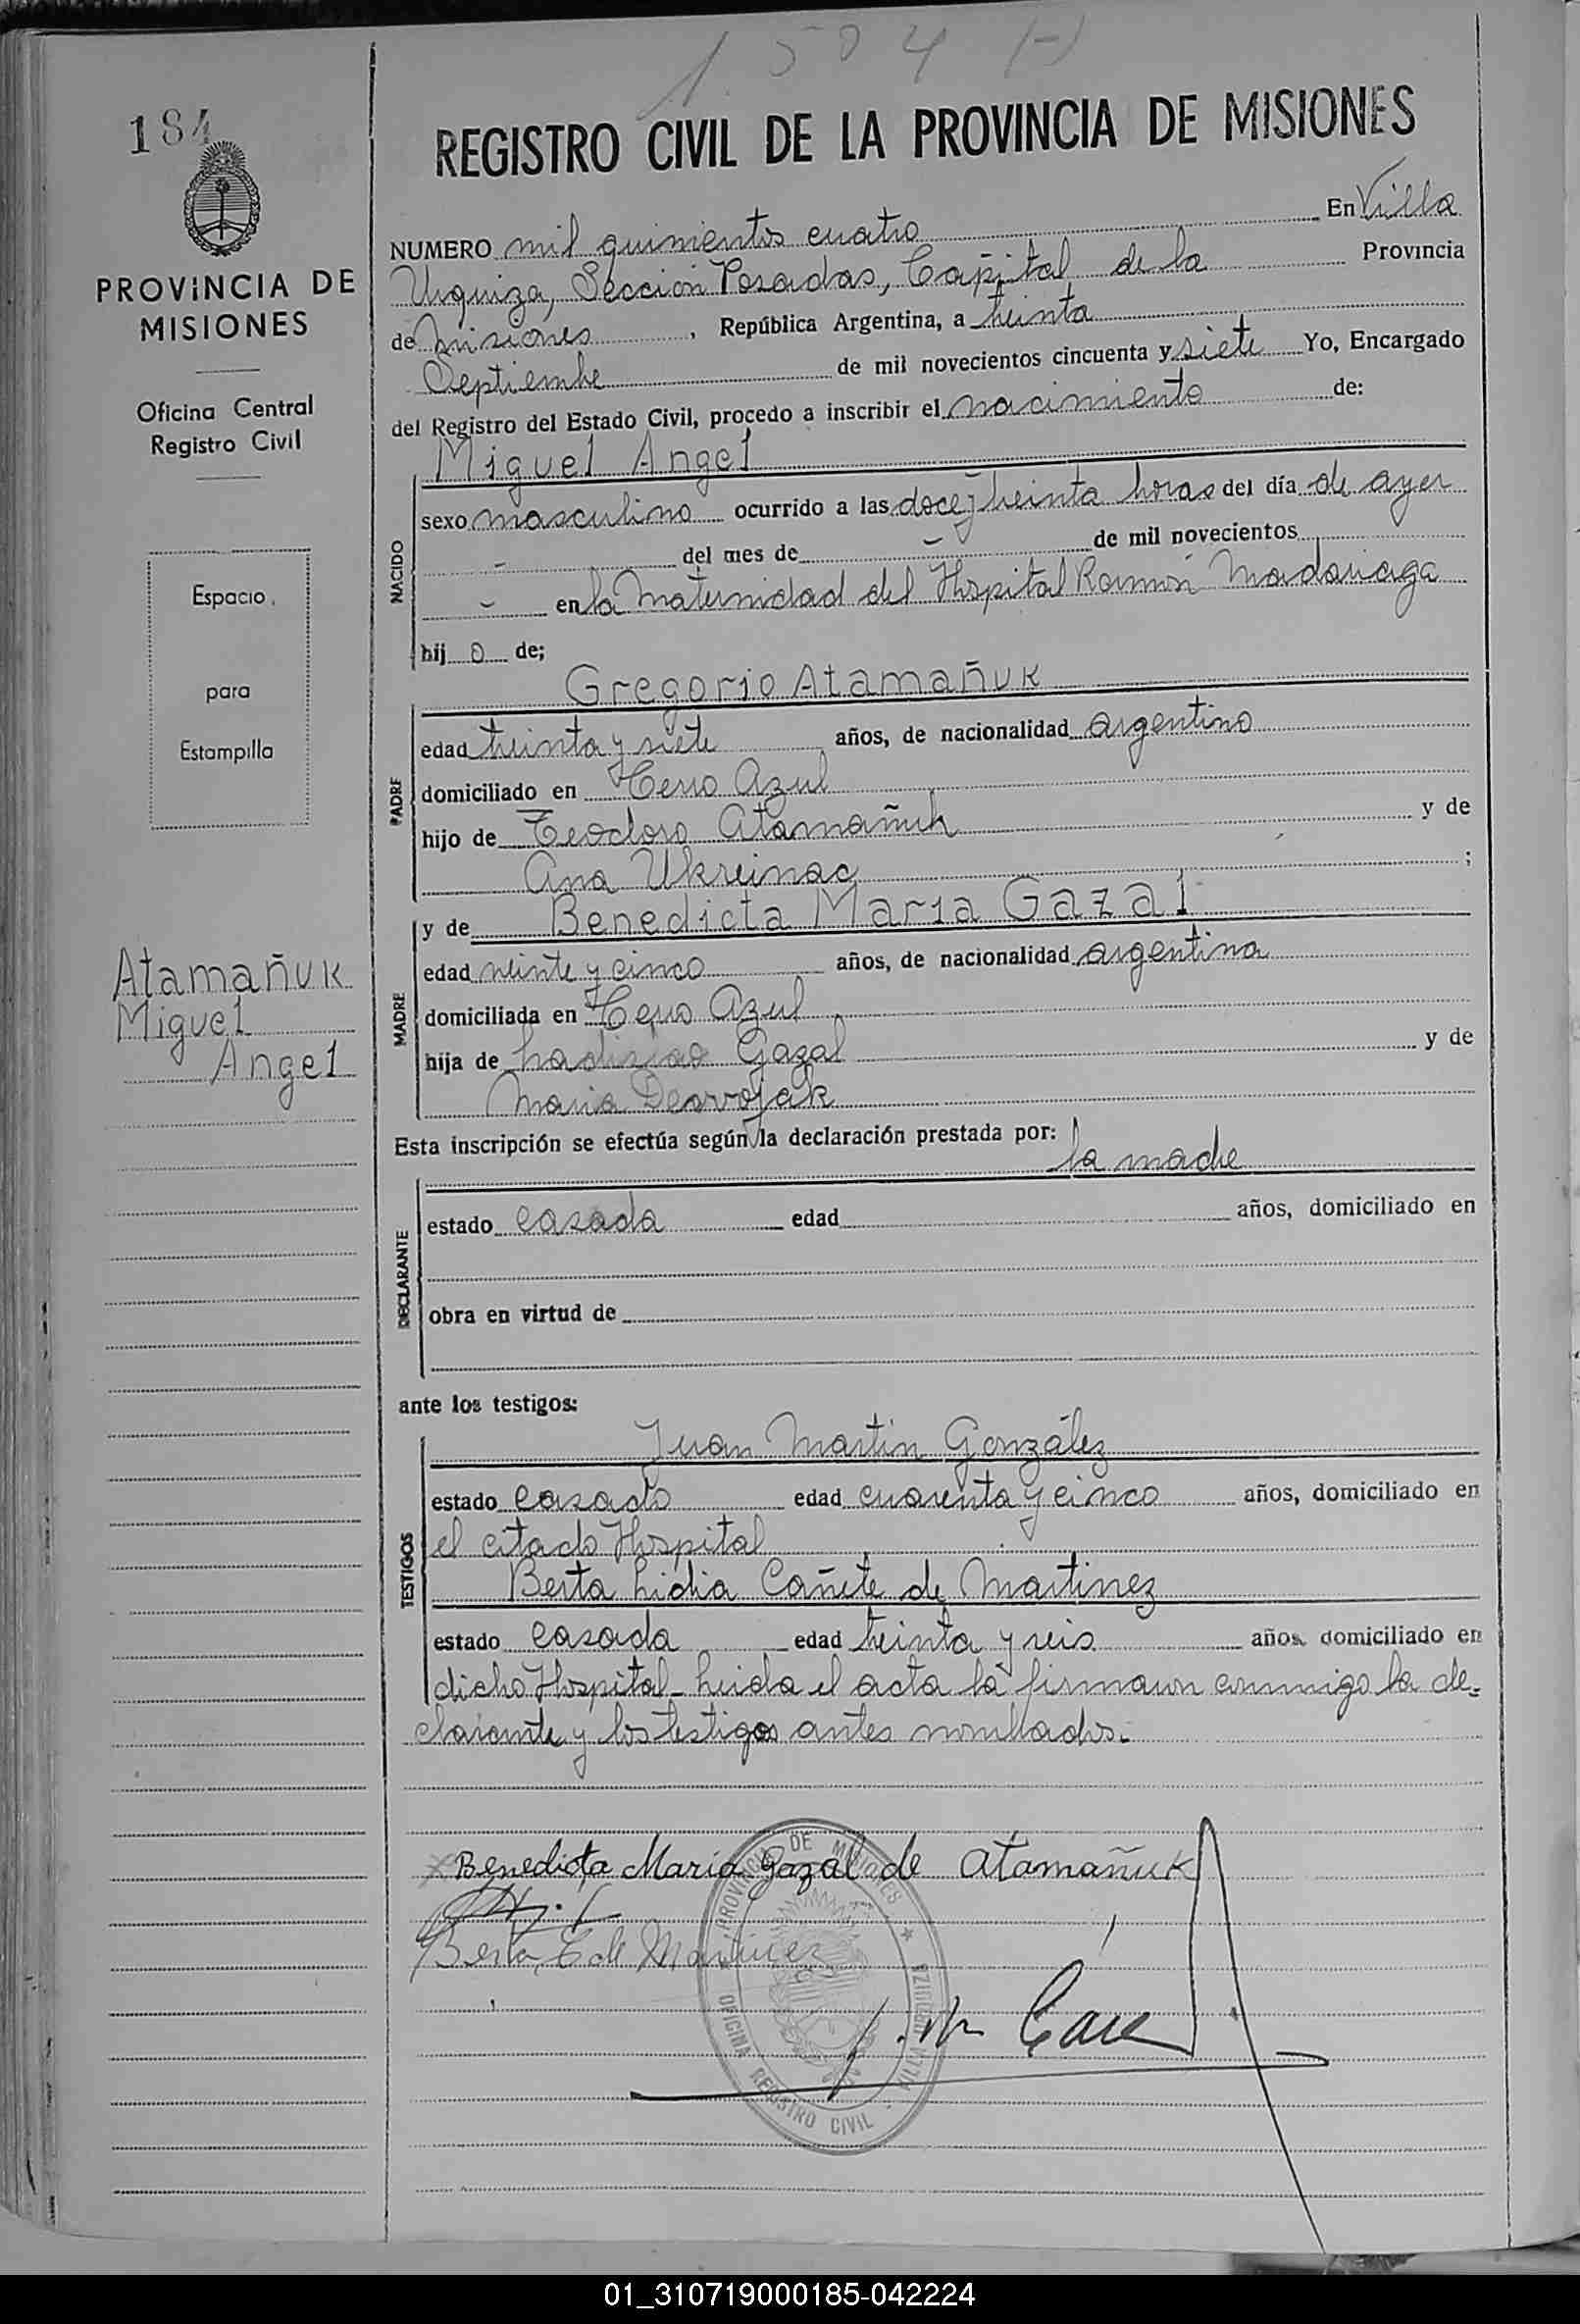 1504 (-)
184
REGISTRO CIVIL DE LA PROVINCIA DE MISIONES
PROVINCIA DE
MISIONES
Oficina Central
Registro Civil
Espacio
para
Estampilla
Atamañuk
Miguel
Angel
NUMERO mil quinientos cuatro En Villa
Urquiza, Sección Posadas, Capital de la Provincia
de Misiones, República Argentina, a treinta
Septiembre de mil novecientos cincuenta y siete Yo, Encargado
del Registro del Estado Civil, procedo a inscribir el nacimiento de:
Miguel Angel
NACIDO
sexo masculino ocurrido a las doce y treinta horas del día de ayer
- del mes de - de mil novecientos
- en la Maternidad del Hospital Ramón Madariaga
hijo de;
Gregorio Atamañuk
PADRE
edad treinta y siete años, de nacionalidad argentino
domiciliado en Cerro Azul
hijo de Teodoro Atamañuk y de
Ana Ukreinac;
y de Benedicta Maria Gazal
MADRE
edad veinte y cinco años, de nacionalidad argentina
domiciliada en Cerro Azul
hija de Ladislao Gazal y de
Maria Deorrojak
Esta inscripción se efectúa según la declaración prestada por:
la madre
DECLARANTE
estado casada edad años, domiciliado en
obra en virtud de
ante los testigos:
Juan Martin González
TESTIGOS
estado casado edad cuarenta y cinco años, domiciliado en
el citado Hospital
Berta Lidia Cañete de Martinez
estado casada edad treinta y seis años, domiciliado en
dicho Hospital_ Leida el acta la firmaron conmigo la de=
clarante y los testigos antes nombrados.
x Benedicta María Gazal de Atamañuk
Berta C de Martinez
PROVINCIA DE MISIONES
OFICINA REGISTRO CIVIL - VILLA URQUIZA
01_310719000185-042224